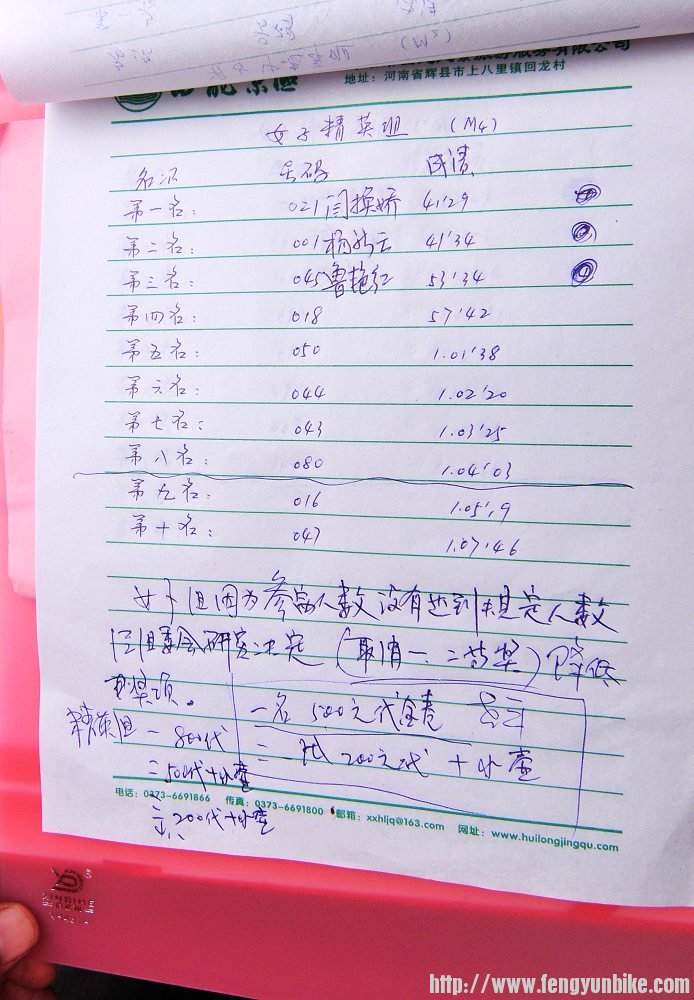 景区 旅游服务有限公司
地址：河南省辉县市上八里镇回龙村
女子精英组 (M4)
名次 号码 成绩
第一名： 021 闫换娇 41'29
第二名： 001 杨 云 41'34
第三名： 045 鲁艳红 53'34
第四名： 018 57'42
第五名： 050 1.01'38
第六名： 044 1.02'20
第七名： 043 1.03'25
第八名： 080 1.04'03
第九名： 016 1.05'19
第十名： 047 1.07'46
女子组因为参赛人数没有达到规定人数
经组委会研究决定 (取消一、二等奖) 降低
奖项。
一名 500元代金卷
精英组 一 800代
二 200元代 + 水壶
二 500代+水壶
三 200代+水壶
电话：0373-6691866 传真：0373-6691800 邮箱：xxhljq@163.com 网址：www.huilongjingqu.com
http://www.fengyunbike.com